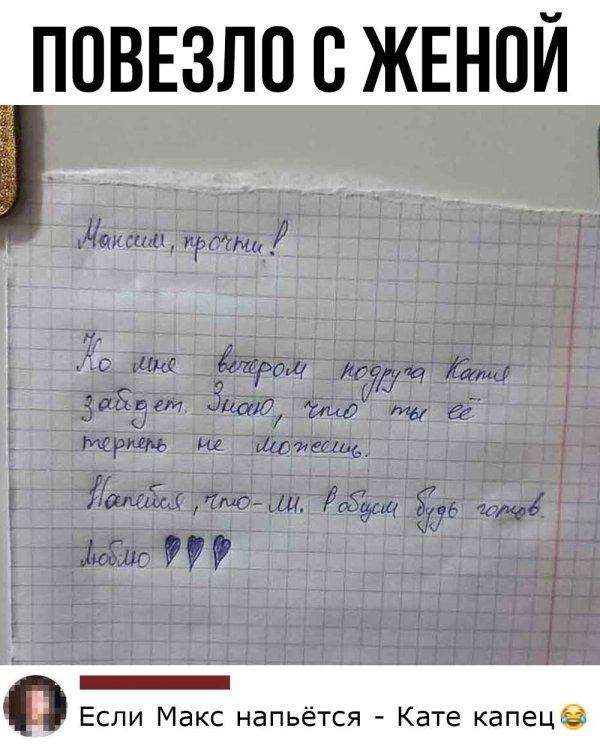 ПОВЕЗЛО С ЖЕНОЙ
Максим, прочти!
Ко мне вечером подруга Катя
зайдет. Знаю, что ты её
терпеть не можешь.
Напейся, что-ли. В общем будь готов.
Люблю
Если Макс напьётся - Кате капец😂